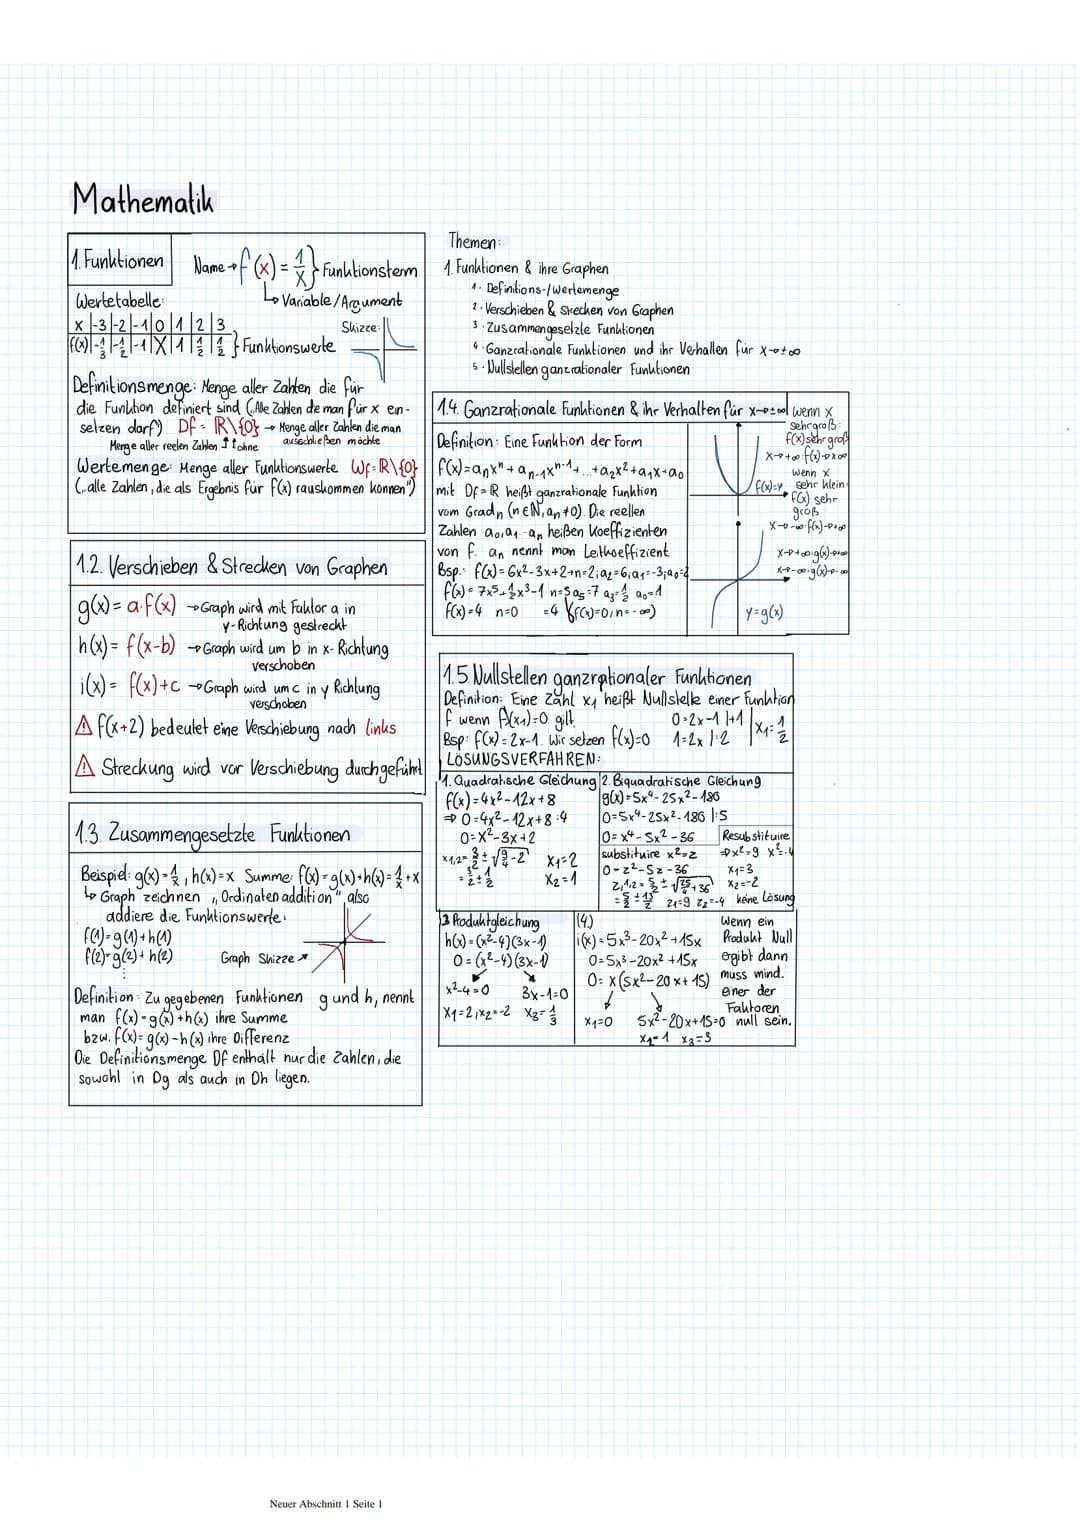 Mathematik
1. Funktionen
Name → f(x) = 1/x } Funktionsterm
↳ Variable/Argument
Wertetabelle:
x |-3|-2|-1|0|1|2|3
f(x)|-1/3|-1/2|-1|X|1|1/2|1/2 } Funktionswerte
Skizze:
Definitionsmenge: Menge aller Zahlen die für
die Funktion definiert sind („Alle Zahlen die man für x ein-
setzen darf“) Df = ℝ\{0} → Menge aller Zahlen die man
ausschließen möchte
Menge aller reellen Zahlen ↑ ↑ ohne
Wertemenge: Menge aller Funktionswerte Wf = ℝ\{0}
(„alle Zahlen, die als Ergebnis für f(x) rauskommen können“)
1.2. Verschieben & Strecken von Graphen
g(x) = a·f(x) → Graph wird mit Faktor a in
y-Richtung gestreckt
h(x) = f(x-b) → Graph wird um b in x-Richtung
verschoben
i(x) = f(x)+c → Graph wird um c in y Richtung
verschoben
⚠ f(x+2) bedeutet eine Verschiebung nach links
⚠ Streckung wird vor Verschiebung durchgeführt
1.3. Zusammengesetzte Funktionen
Beispiel: g(x) = 1/x, h(x)=x Summe: f(x) = g(x)+h(x) = 1/x + x
↳ Graph zeichnen „Ordinatenaddition“ also
addiere die Funktionswerte:
f(1)=g(1)+h(1)
f(2)=g(2)+h(2)
⋮
Graph Skizze ↗
Definition: Zu gegebenen Funktionen g und h, nennt
man f(x)=g(x)+h(x) ihre Summe
bzw. f(x)=g(x)-h(x) ihre Differenz
Die Definitionsmenge Df enthält nur die Zahlen, die
sowohl in Dg als auch in Dh liegen.
Themen:
1. Funktionen & ihre Graphen
1. Definitions-/Wertemenge
2. Verschieben & Strecken von Graphen
3. Zusammengesetzte Funktionen
4. Ganzrationale Funktionen und ihr Verhalten für x→±∞
5. Nullstellen ganzrationaler Funktionen
1.4. Ganzrationale Funktionen & ihr Verhalten für x→±∞
Definition: Eine Funktion der Form
f(x)=aₙxⁿ+aₙ₋₁xⁿ⁻¹+...+a₂x²+a₁x+a₀
mit Df=ℝ heißt ganzrationale Funktion
vom Grad n (n∈ℕ, aₙ≠0). Die reellen
Zahlen a₀, a₁...aₙ heißen Koeffizienten
von f. aₙ nennt man Leitkoeffizient
Bsp.: f(x)=6x²-3x+2→n=2; a₂=6, a₁=-3; a₀=2
f(x)=7x⁵+1/2x³-1 n=5 a₅=7 a₃=1/2 a₀=1
f(x)=4 n=0 =4 (f(x)=0; n=-∞)
wenn x
sehr groß:
f(x) sehr groß
x→+∞: f(x)→∞
wenn x
sehr klein
f(x)=y
f(x) sehr
groß
x→-∞: f(x)→+∞
x→+∞: g(x)→+∞
x→-∞: g(x)→-∞
y=g(x)
1.5 Nullstellen ganzrationaler Funktionen
Definition: Eine Zahl x₁ heißt Nullstelle einer Funktion
f wenn f(x₁)=0 gilt.
Bsp: f(x)=2x-1. Wir setzen f(x)=0
0=2x-1 |+1
1=2x |:2
x₁=1/2
LÖSUNGSVERFAHREN:
1. Quadratische Gleichung
f(x)=4x²-12x+8
⇒ 0=4x²-12x+8 :4
0=x²-3x+2
x1,2= 3/2 ± √(9/4-2)
= 3/2 ± 1/2
x₁=2
x₂=1
2. Biquadratische Gleichung
g(x)=5x⁴-25x²-180
0=5x⁴-25x²-180 |:5
0=x⁴-5x²-36
substituire x²=z
0=z²-5z-36
z1,2= 5/2 ± √(25/4+36)
= 5/2 ± 13/2 z₁=9 z₂=-4
Resubstituire
⇒x²=9 x²=-4
x₁=3
x₂=-2
keine Lösung
3 Produktgleichung
h(x)=(x²-4)(3x-1)
0=(x²-4)(3x-1)
x²-4=0 3x-1=0
x₁=2, x₂=-2 x₃=1/3
(4)
i(x)=5x³-20x²+15x
0=5x³-20x²+15x
0=x(5x²-20x+15)
x₁=0 5x²-20x+15=0
x₂=1 x₃=3
Wenn ein
Produkt Null
ergibt dann
muss mind.
einer der
Faktoren
null sein.
Neuer Abschnitt 1 Seite 1